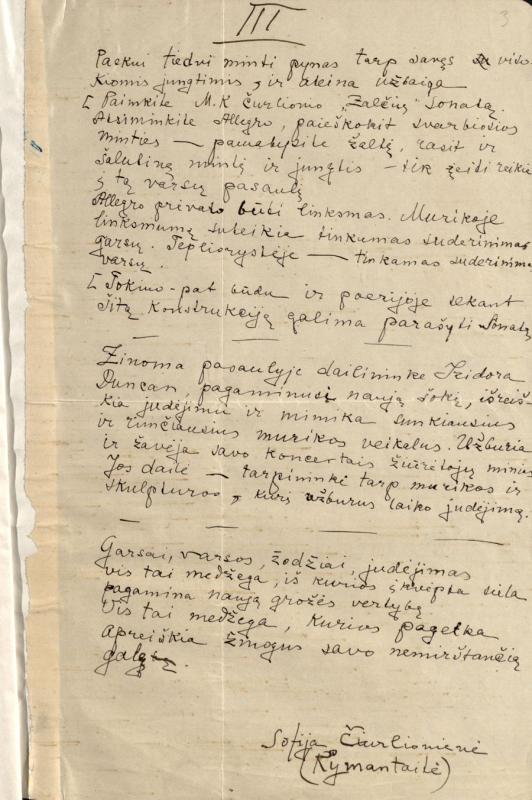 III
3
Paskui tiedvi minti pynas tarp savęs viso-
kiomis jungtimis, ir ateina užbaiga
[ Paimkite M. K Čurlionio „Žalčių" Sonatą.
Atsiminkite Allegro, paieškokit svarbiosios
minties — pamatysite žaltį, rasit ir
šalutinę mintį ir jungtis — tik įeiti reikia
į tą varsų pasaulį
Allegro privalo būti linksmas. Muzikoje
linksmumą suteikia tinkamas suderinimas
garsų. Tepliorystėje — tinkamas suderinimas
varsų.
[ Tokiuo-pat būdu ir poezijoje sekant
šitą konstrukciją galima parašyti Sonatą
Žinoma pasaulyje dailininkė Izidora
Duncan, pagaminusi naują šokį, išreiš-
kia judėjimu ir mimika sunkiausius
ir rimčiausius muzikos veikalus. Užburia
ir žavėja savo koncertais žiūrėtojų minias
Jos dailė — tarpininkė tarp muzikos ir
skulpturos, kurį užburus laiko judėjimą.
Garsai, varsos, žodžiai, judėjimas
vis tai medžega, iš kurios įkvėpta siela
pagamina naują grožės vertybę
Vis tai medžega, kurios pagelba
apreiškia žmogus savo nemirštančią
galę
Sofija Čiurlionienė
(Kymantaitė)